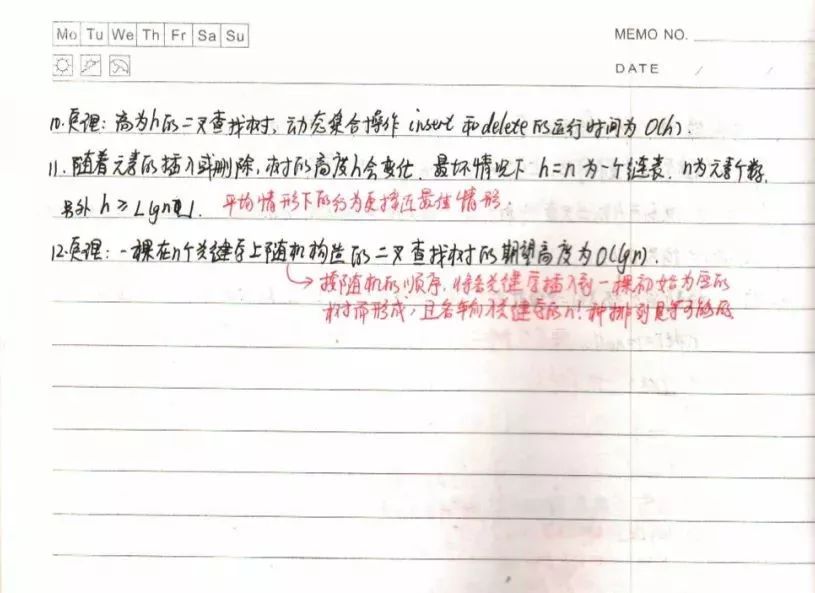 Mo Tu We Th Fr Sa Su
MEMO NO.
DATE / /
10.定理:高为h的二叉查找树,动态集合操作 insert 和delete的运行时间为 O(h).
11.随着元素的插入或删除,树的高度h会变化. 最坏情况下 h=n 为一个链表. n为元素个数.
另外 h ≥ ⌊lgn⌋. 平均情形下的行为更接近最佳情形.
12.定理:一棵在n个关键字上随机构造的二叉查找树的期望高度为O(lgn).
→ 按随机的顺序,将各关键字插入到一棵初始为空的
树而形成,且各 关键字的n!种排列是等可能的